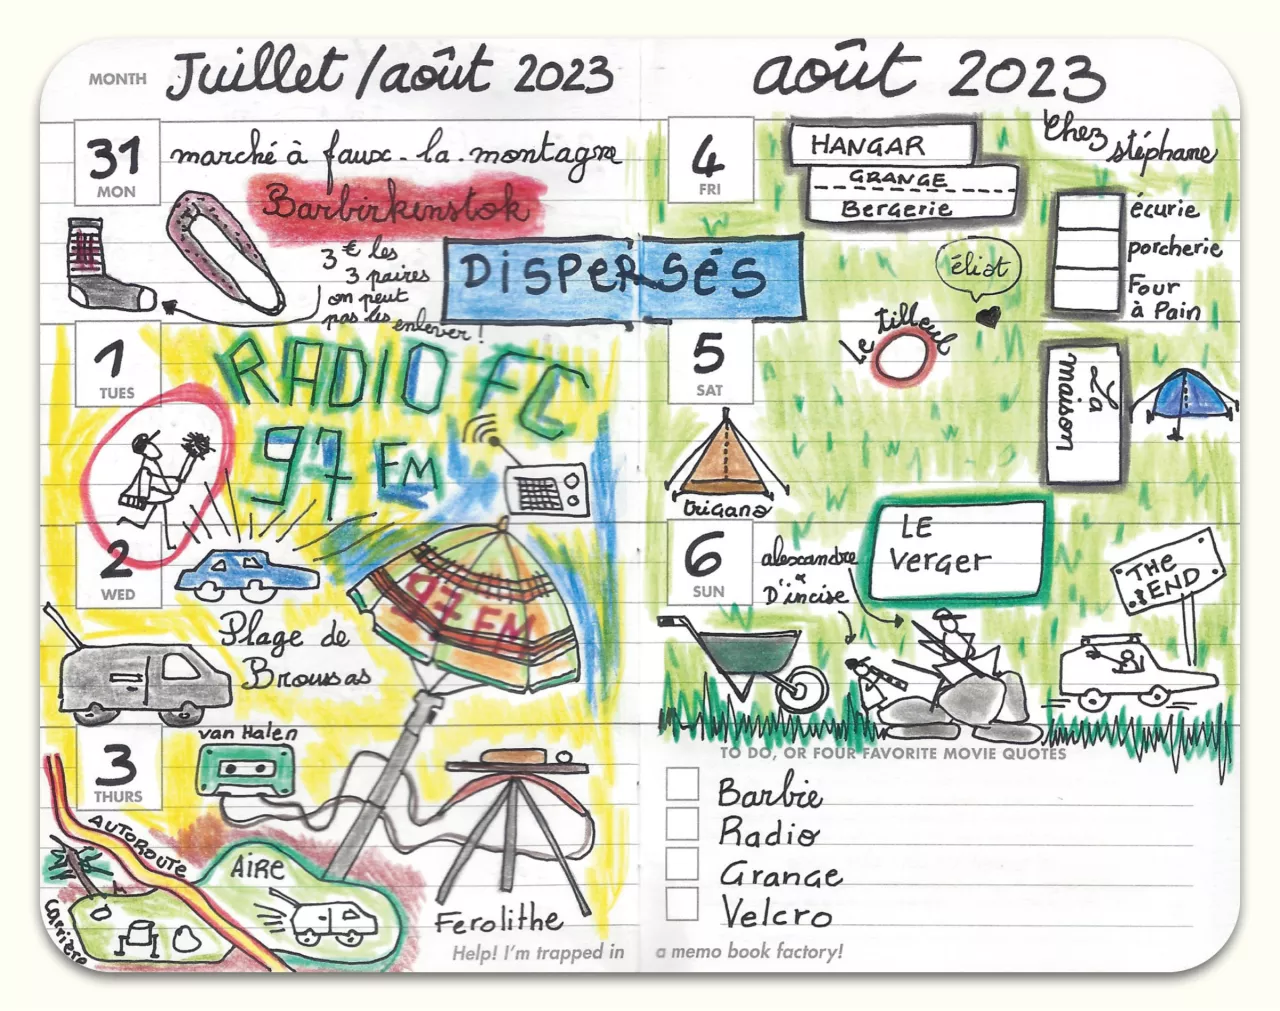 MONTH Juillet/août 2023
31
MON
marché à faux-la-montagne
Barbirkenstok
3 € les
3 paires
on peut
pas les enlever !
DISPERSÉS
1
TUES
RADIO FC
97 FM
2
WED
97 FM
Plage de
Broussas
3
THURS
van Halen
AUTOROUTE
AIRE
Carrière
Ferolithe
Help! I'm trapped in
août 2023
4
FRI
HANGAR
GRANGE
Bergerie
Chez
stéphane
écurie
porcherie
Four
à Pain
éliot
Le tilleul
5
SAT
La
maison
trigano
6
SUN
alexandre
D'incise
LE
Verger
THE
END
TO DO, OR FOUR FAVORITE MOVIE QUOTES
Barbie
Radio
Grange
Velcro
a memo book factory!